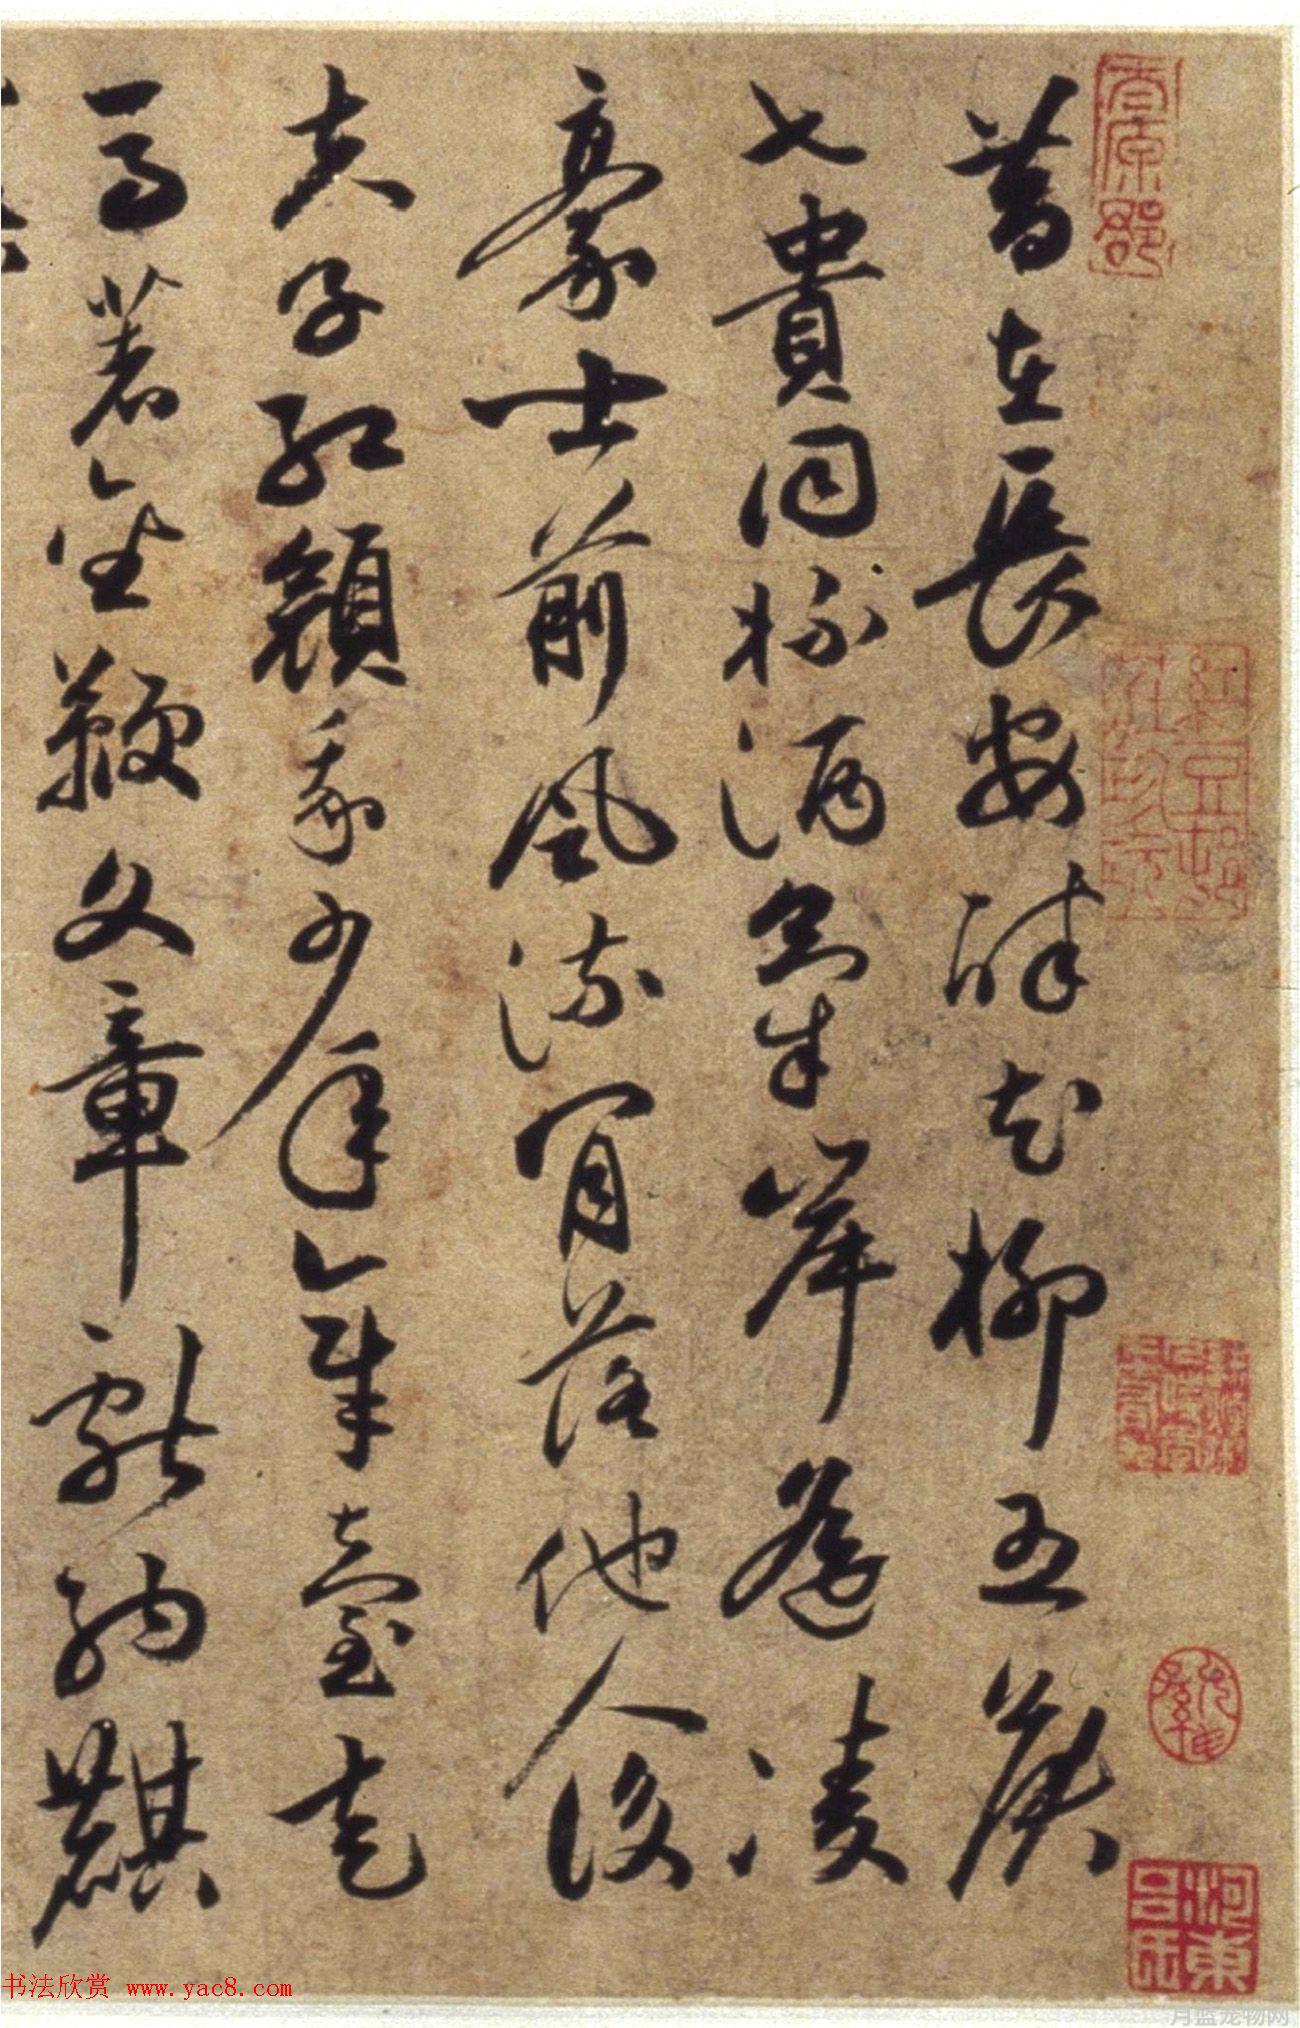 昔在長安醉花柳五侯
七貴同杯酒氣岸遙凌
豪士前風流肯落他人後
夫子紅顏我少年章臺走
馬著金鞭文章獻納麒
太原郡
柯東
书法欣赏 www.yac8.com
月蓝宠物网